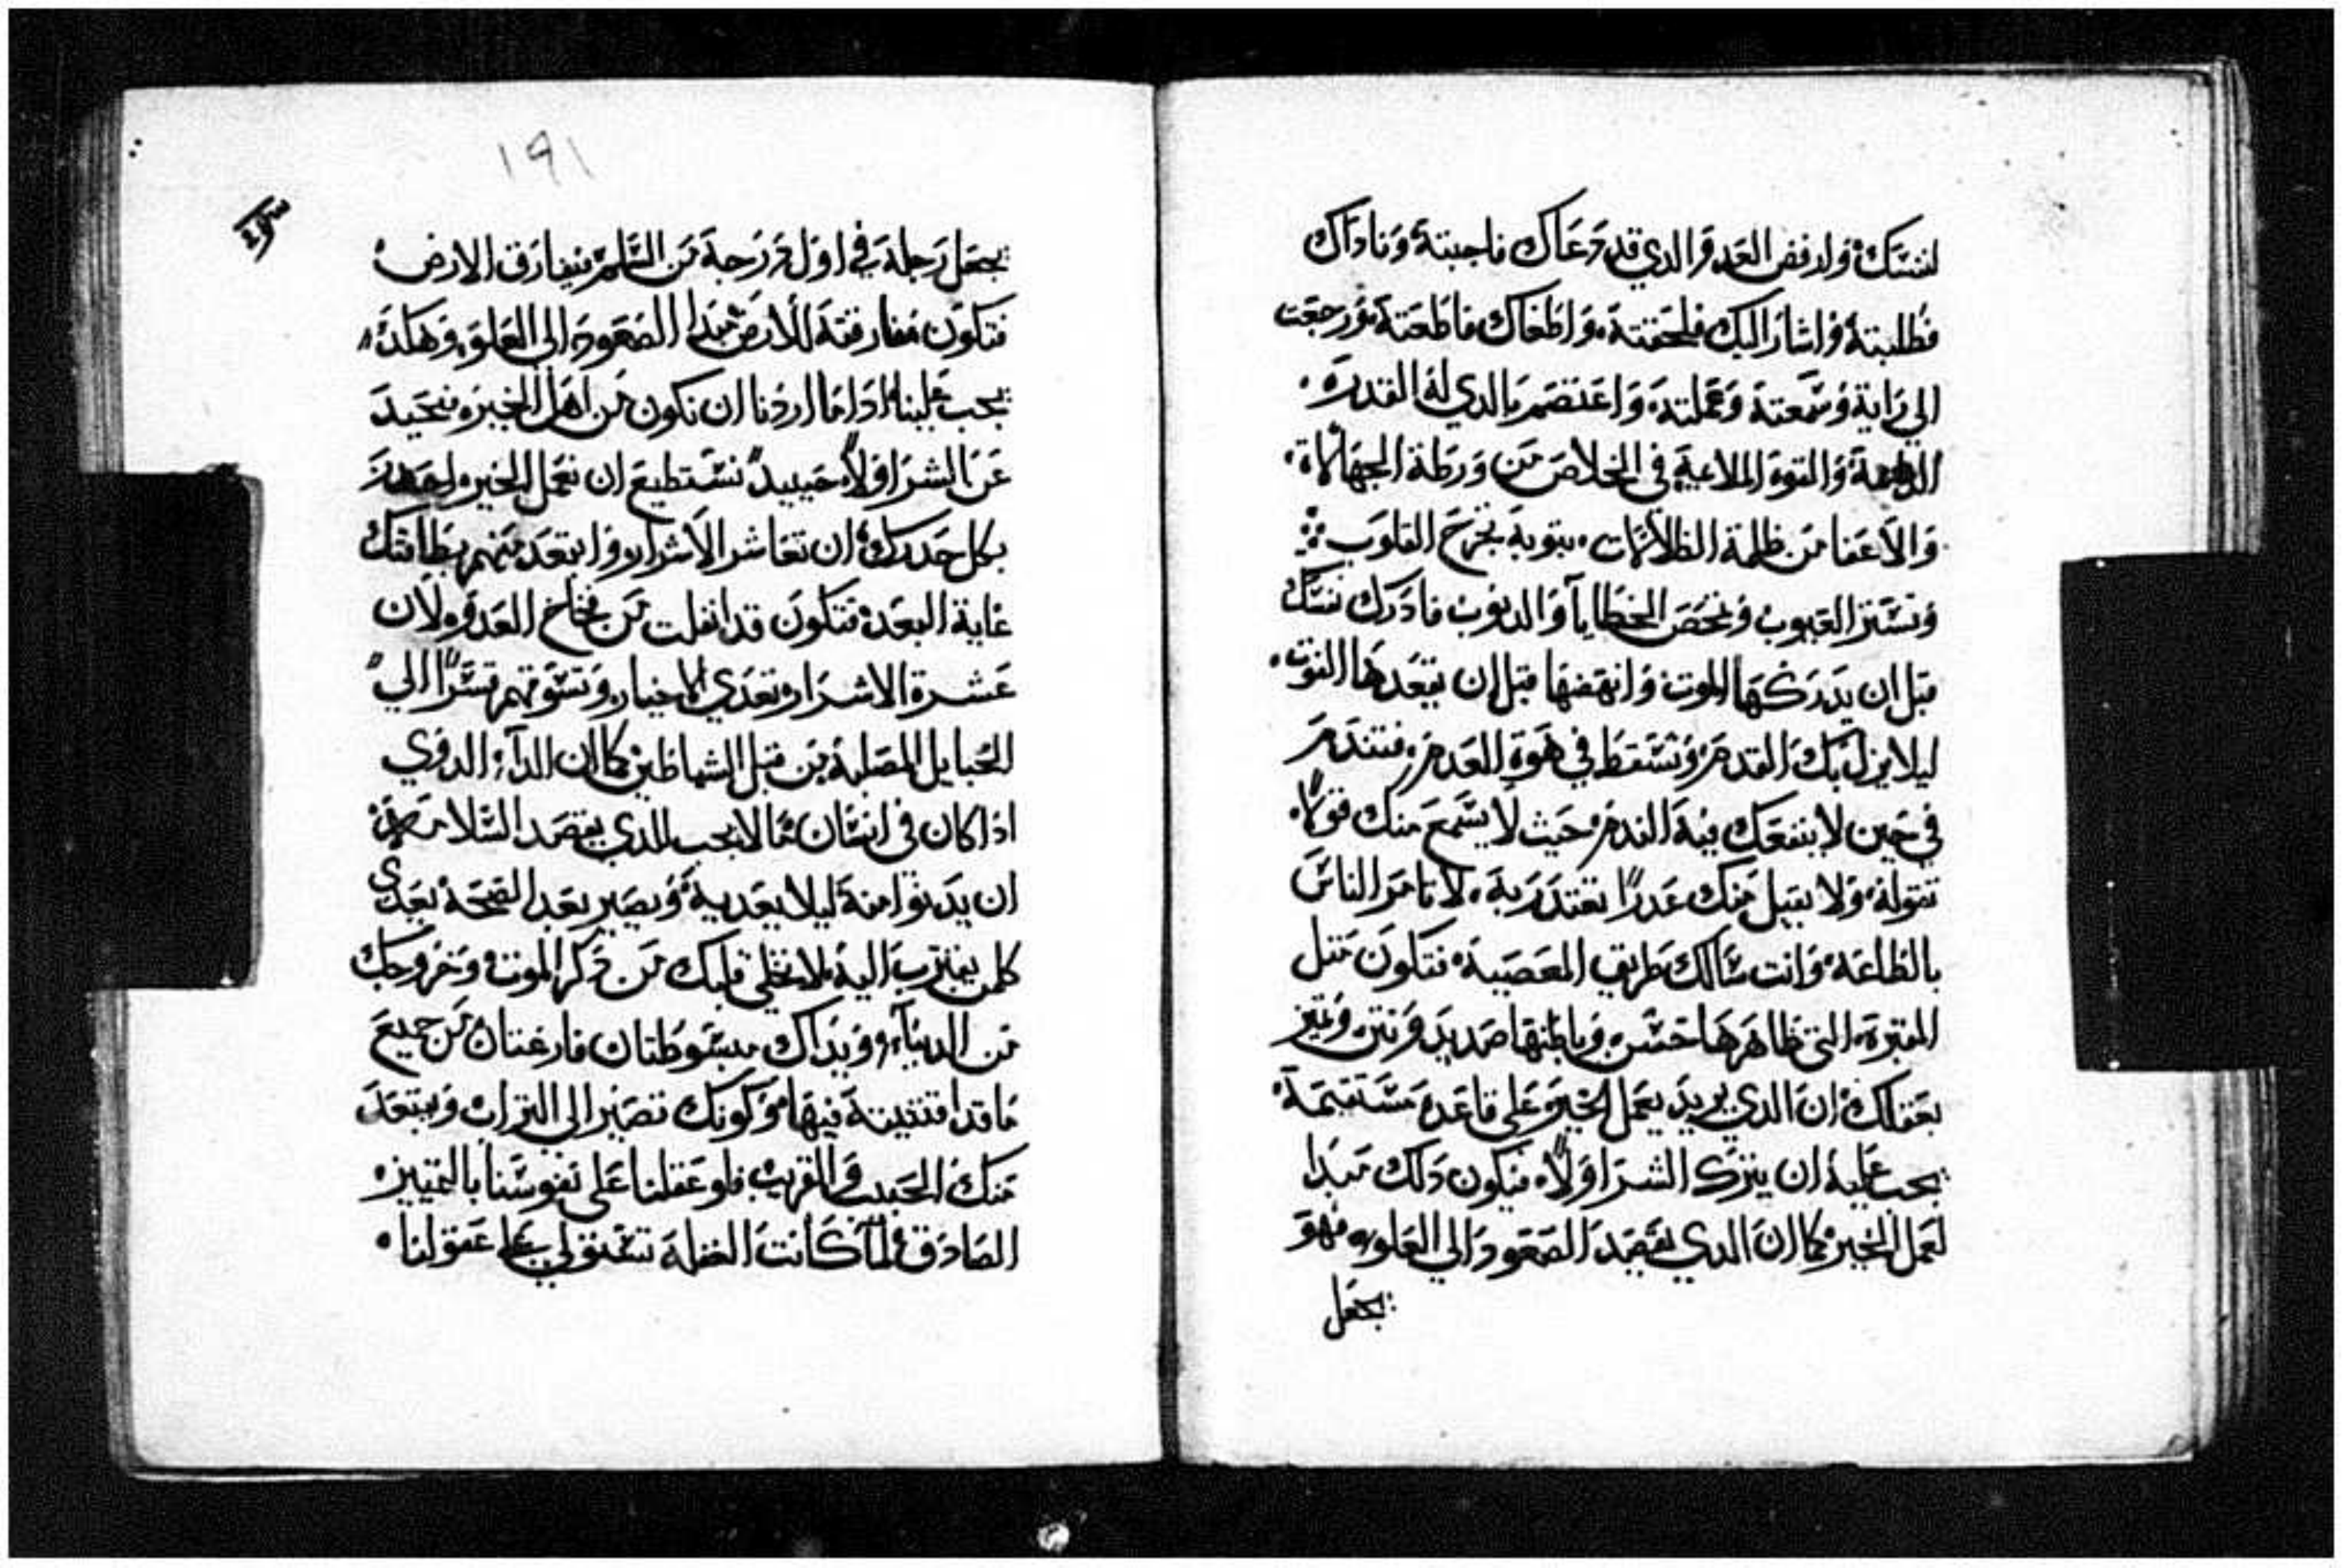 لنفسك وارفض العدو الدي قد دعاك فاجبته وناداك
فطلبته واشار اليك فلحقته واطغاك فاطعته ورجعت
الي رايه وسمعته وعملته واعتصم بالدي له القدره
والقوه الملاعيه في الخلاص من ورطة الجهالات
والاعفا من ظلمة الظلامات بتوبه تجرح القلوب
وتستر العيوب وتمحص الخطايا والدنوب فادرك نفسك
قبل ان يدركها الموت وانهضها قبل ان يقعدها الفوت
ليلا يزل بك القدم وتسقط في هوة العدم فتندم
في حين لا ينفعك فيه الندم حيث لا يسمع منك قولاً
تقوله ولا يقبل منك عدراً تعتدر به لا تامر الناس
بالطاعه وانت سالك طريق المعصيه فتكون متل
المقبره التي ظاهرها حسن وباطنها صديد ونتن وميز
بعقلك ان الدي يريد يعمل الخير علي قاعده مستقيمه
يجب عليه ان يترك الشر اولاً فيكون دلك مبدا
لعمل الخير كما ان الدي يقصد الصعود الي العلو فهو
يجعل
١٩١
يجعل رجله في اول درجة من السلم فيفارق الارض
فتكون مفارقته للارض مبدا الصعود الي العلو وهكدي
يجب علينا ادا ما اردنا ان نكون من اهل الخير فنحيد
عن الشر اولاً حينيدٍ نستطيع ان نعمل الخير احدر
بكل جهدك ان تعاشر الاشرار وابتعد منهم بطاقتك
غاية البعد فتكون قد انفلت من فخاخ العدو لان
عشرة الاشرار تعدي الاخيار وتسوقهم قسراً الي
الحبايل المصليه من قبل الشياطين كما ان الدآء الدوي
ادا كان في انسان ما لا يجب للدي يقصد السلامه
ان يدنوا منه ليلا يعديه ويصير بعد الصحه يعدي
كلمن يقترب اليه لا تخلي قلبك من دكر الموت وخروجك
من الدنيا ويداك مبسوطتان فارغتان من جميع
ما قد اقتنيته فيها وكونك تصير الي التراب ويبتعد
منك الحبيب والقريب فلو عقلنا علي نفوسنا بالتمييز
الصادق لما كانت الغفله تستولي علي عقولنا